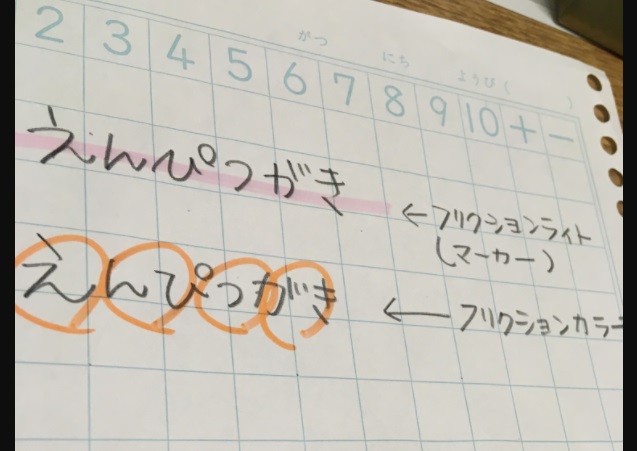 がつ にち ようび( )
2 3 4 5 6 7 8 9 10 + −
えんぴつがき
←フリクションライト
(マーカー)
えんぴつがき
←フリクションカラー